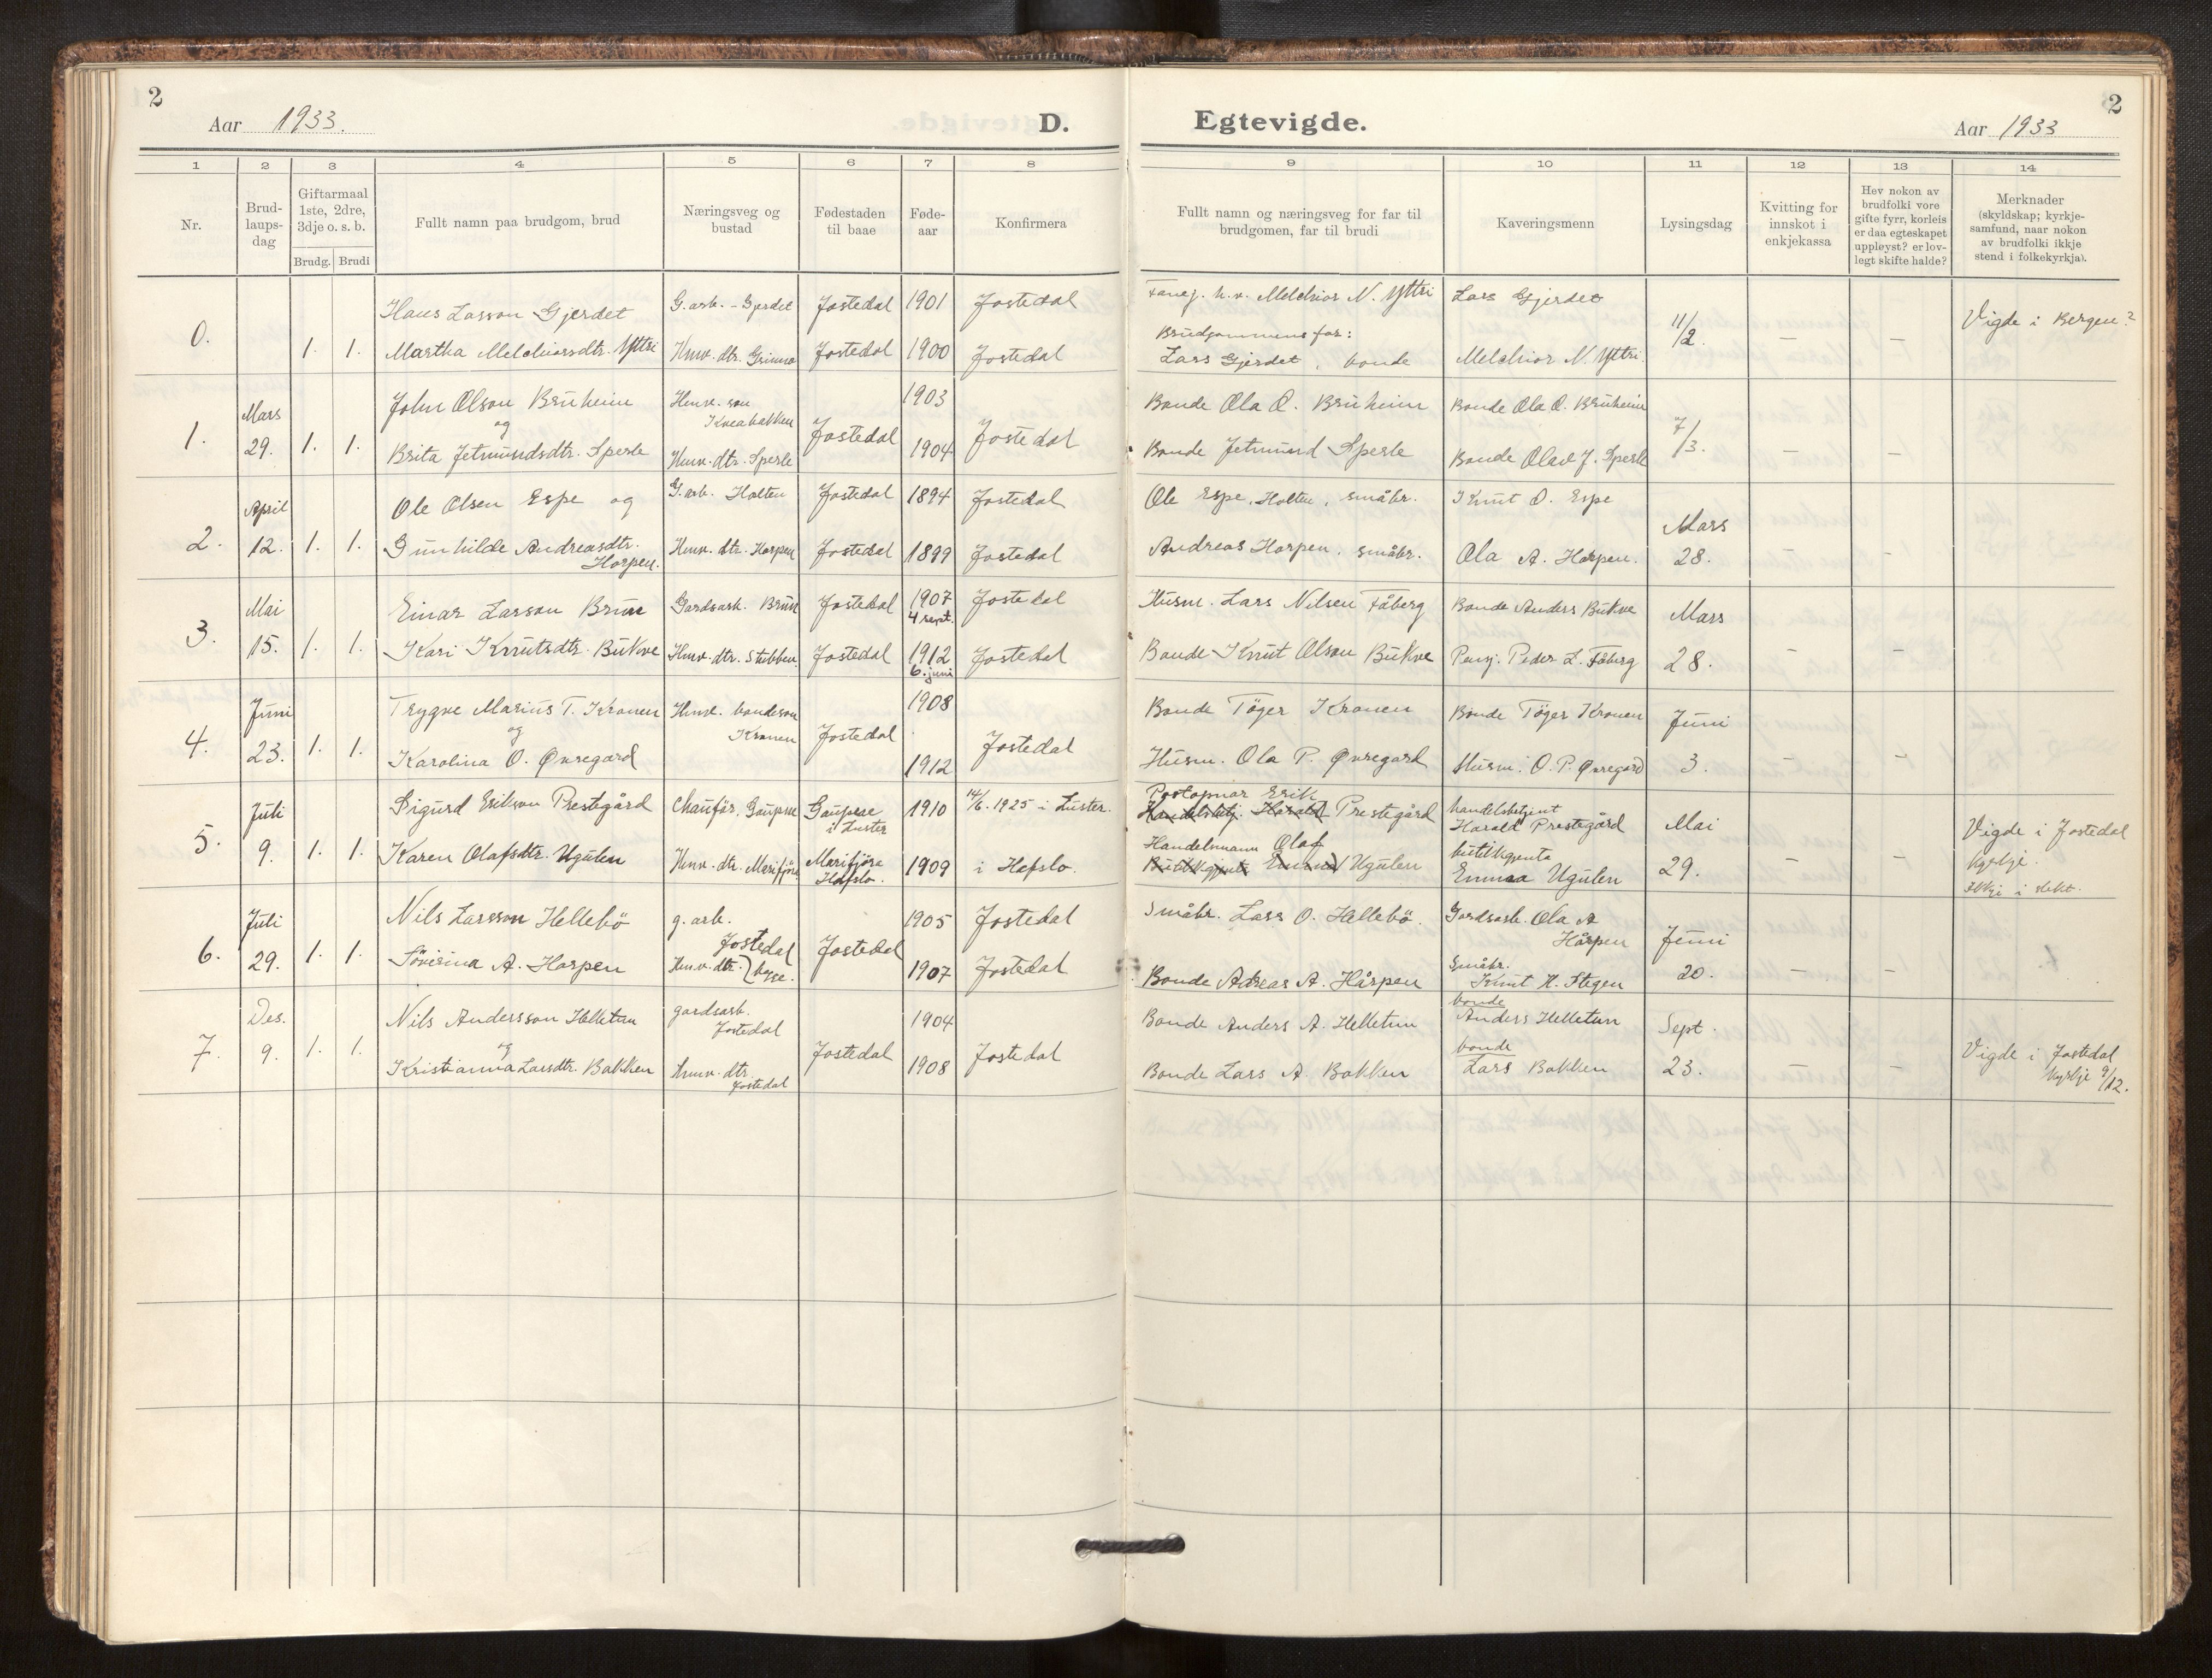 2
Aar 1933.
D.
Egtevigde.
2
Aar 1933
1 2 3 4 5 6 7 8
Nr.
Brud-
laups-
dag
Giftarmaal
1ste, 2dre,
3dje o. s. b.
Brudg. Brudi
Fullt namn paa brudgom, brud
Næringsveg og
bustad
Fødestaden
til baae
Føde-
aar
Konfirmera
9 10 11 12 13 14
Fullt namn og næringsveg for far til
brudgomen, far til brudi
Kaveringsmenn
Lysingsdag
Kvitting for
innskot i
enkjekassa
Hev nokon av
brudfolki vore
gifte fyrr, korleis
er daa egteskapet
uppløyst? er lov-
legt skifte halde?
Merknader
(skyldskap; kyrkje-
samfund, naar nokon
av brudfolki ikkje
stend i folkekyrkja).
0.
Hans Larson Gjerdet G. arb. - Gjerdet Jostedal 1901 Jostedal
1. 1. Martha Melchiorsdtr. Yttri Husv. dtr. Jostedal 1900 Jostedal
h.v. Melchior N. Yttri Lars Gjerdet
11/2 – – Vigde i Bergen?
Brudgommens far:
Lars Gjerdet, bonde Melchior N. Yttri.
1.
Mars
29. 1. 1.
John Olson Bruheim Husv. son 1903
Kreabakken
og
Jostedal Jostedal
Brita Jetmundsdtr. Sperle Husv. dtr. Sperle 1904
Bonde Ola O. Bruheim Bonde Ola O. Bruheim
7/3. – –
Bonde Jetmund Sperle Bonde Olav J. Sperle
2.
April
12. 1. 1.
Ole Olsen Espe og G. arb. Holten Jostedal 1894 Jostedal
Gunhilde Andreasdtr. Husv. dtr. Harpen Jostedal 1899 Jostedal
Horpen.
Ole Espe, Holten, småbr. Knut O. Espe
Mars
28. – –
Andreas Horpen, småbr. Ola A. Horpen.
3.
Mai
15. 1. 1.
Einar Larson Brun Gardsarb. Brun Jostedal 1907 Jostedal
4 sept.
Kari Knutsdtr. Bukve Husv. dtr. Stubben Jostedal 1912 Jostedal
6. juni
Husm. Lars Nilsen Fåberg Bonde Anders Bukve Mars
Bonde Knut Olson Bukve Pensj. Peder L. Fåberg 28. – –
4.
Juni
23. 1. 1.
Trygve Marius T. Kronen Husv. bondeson 1908
og
Kronen Jostedal
Jostedal
Karolina O. Øvregard 1912
Bonde Tøger Kronen Bonde Tøger Kronen Juni
Husm. Ola P. Øvregard Husm. O. P. Øvregard 3. – –
5.
Juli
9. 1. 1.
Sigurd Erikson Prestegård Chaufør, Gaupne Gaupne 1910 14/6. 1925 i Luster.
i Luster
Karen Olafsdtr. Ugulen Husv. dtr. Marifjøra Marifjøra 1909 i Hafslo.
Hafslo.
Postopnar Erik
Handelsbetj. Harald Prestegård
handelsbetjent
Harald Prestegård Mai
Handelsmann Olaf
Butikkgjenta Emma Ugulen
butikkgjenta
Emma Ugulen 29. – –
Vigde i Jostedal
kyrkje.
Ikkje i slekt.
6.
Juli
29. 1. 1.
Nils Larsson Hellebö g. arb. 1905 Jostedal
Jostedal Jostedal
Söverina A. Horpen Husv. dtr. begge. 1907 Jostedal
Småbr. Lars O. Hellebö. Gardsarb. Ola A
Hårpen Juni
Bonde Adreas A. Hårpen
Småbr.
Knut H. Stegen 20. – –
7.
Des.
9. 1. 1.
Nils Andersson Helletun gardsarb. 1904
Jostedal
og
Jostedal Jostedal
Kristianna Larsdtr. Bakken husv. dtr. 1908
Jostedal
Bonde Anders A. Helletun
bonde
Anders Helletun Sept.
Bonde Lars A. Bakken
bonde
Lars Bakken 23. – –
Vigde i Jostedal
kyrkje 9/12.